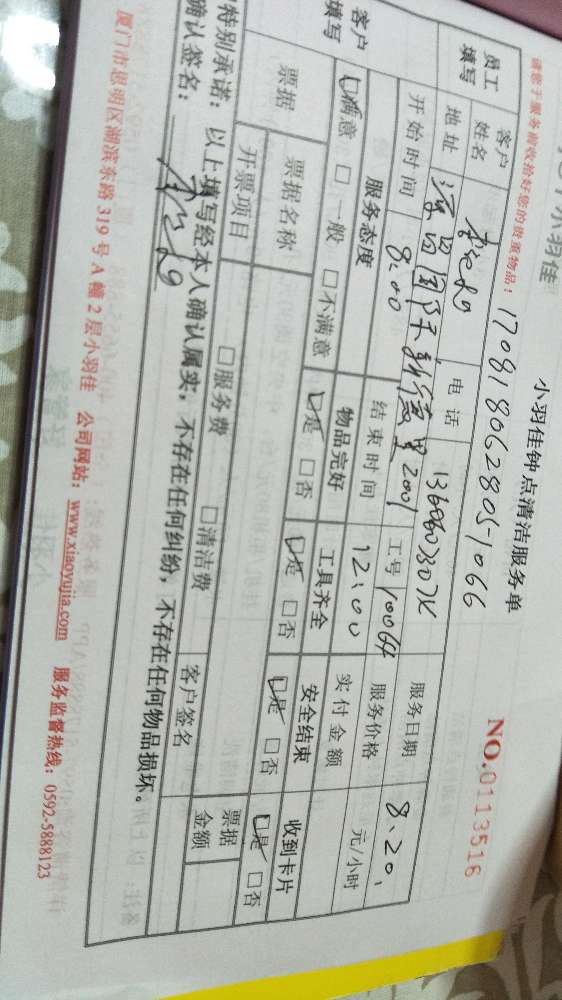 小羽佳
小羽佳钟点清洁服务单
NO.0113516
请您于服务前收拾好您的贵重物品！ 170818062805-1066
员工填写 客户姓名 电话 服务日期 8.20.
地址 2001 工号 10064 服务价格 元/小时
开始时间 8:00 结束时间 12:00 实付金额
客户填写 服务态度 物品完好 工具齐全 安全结束 收到卡片
☑满意 □一般 □不满意 ☑是 □否 ☑是 □否 ☑是 □否 ☑是 □否
票据 票据名称 □服务费 □清洁费 票据金额
开票项目 客户签名
特别承诺：以上填写经本人确认属实，不存在任何纠纷，不存在任何物品损坏。
确认签名：
厦门市思明区湖滨东路319号A幢2层小羽佳 公司网站：www.xiaoyujia.com 服务监督热线：0592-5888123